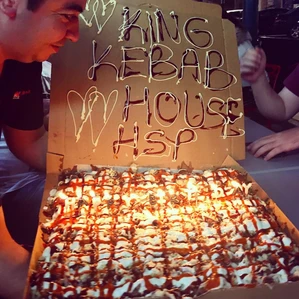 KING
KEBAB
HOUSE
HSP